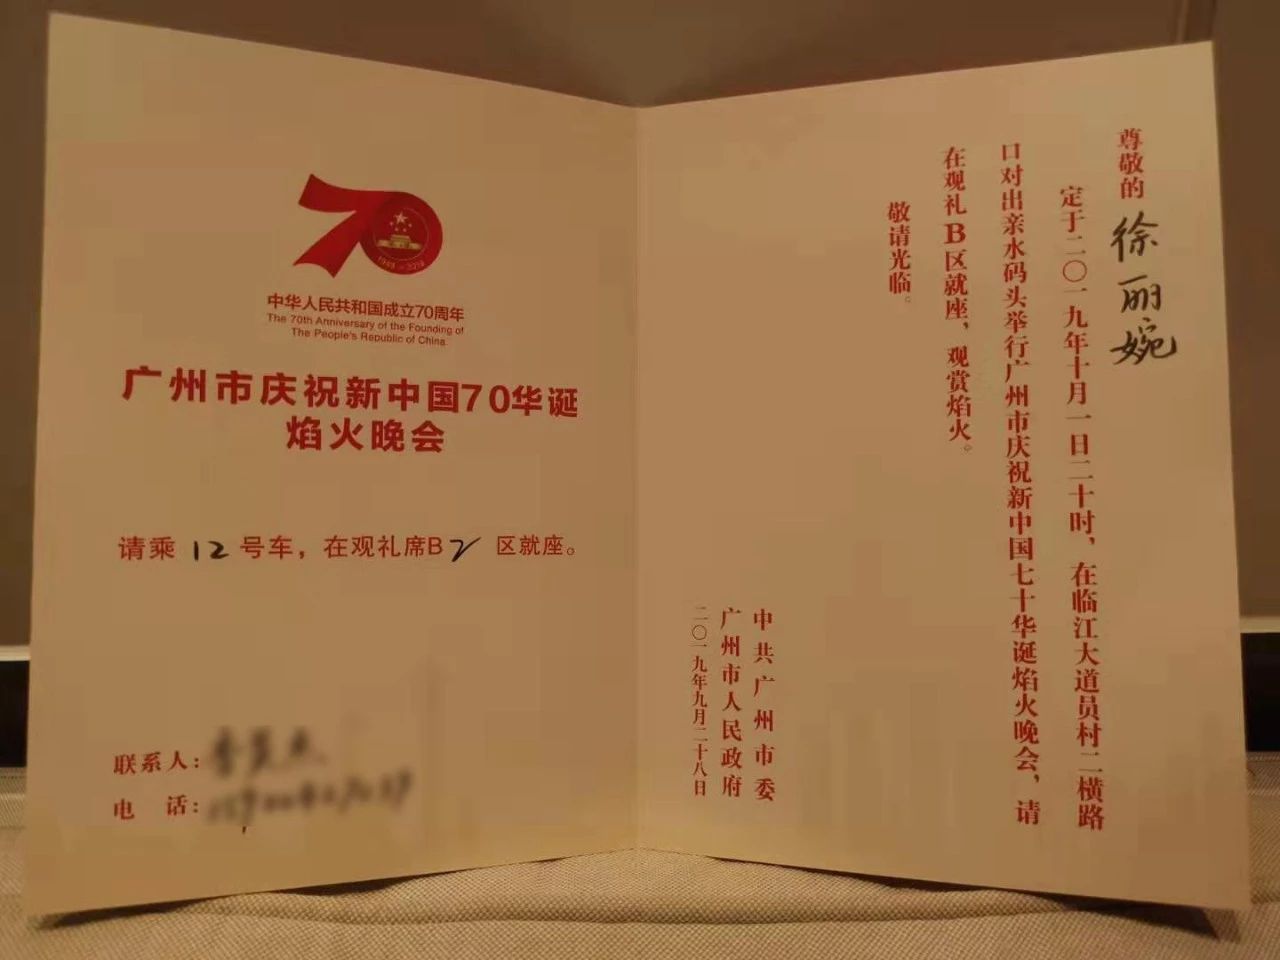 1949-2019
中华人民共和国成立70周年
The 70th Anniversary of the Founding of
The People's Republic of China
广州市庆祝新中国70华诞
焰火晚会
请乘 12 号车，在观礼席B2 区就座。
联系人：
电 话：
尊敬的 徐丽婉
定于二〇一九年十月一日二十时，在临江大道员村二横路
口对出亲水码头举行广州市庆祝新中国七十华诞焰火晚会，请
在观礼B区就座，观赏焰火。
敬请光临。
中共广州市委
广州市人民政府
二〇一九年九月二十八日